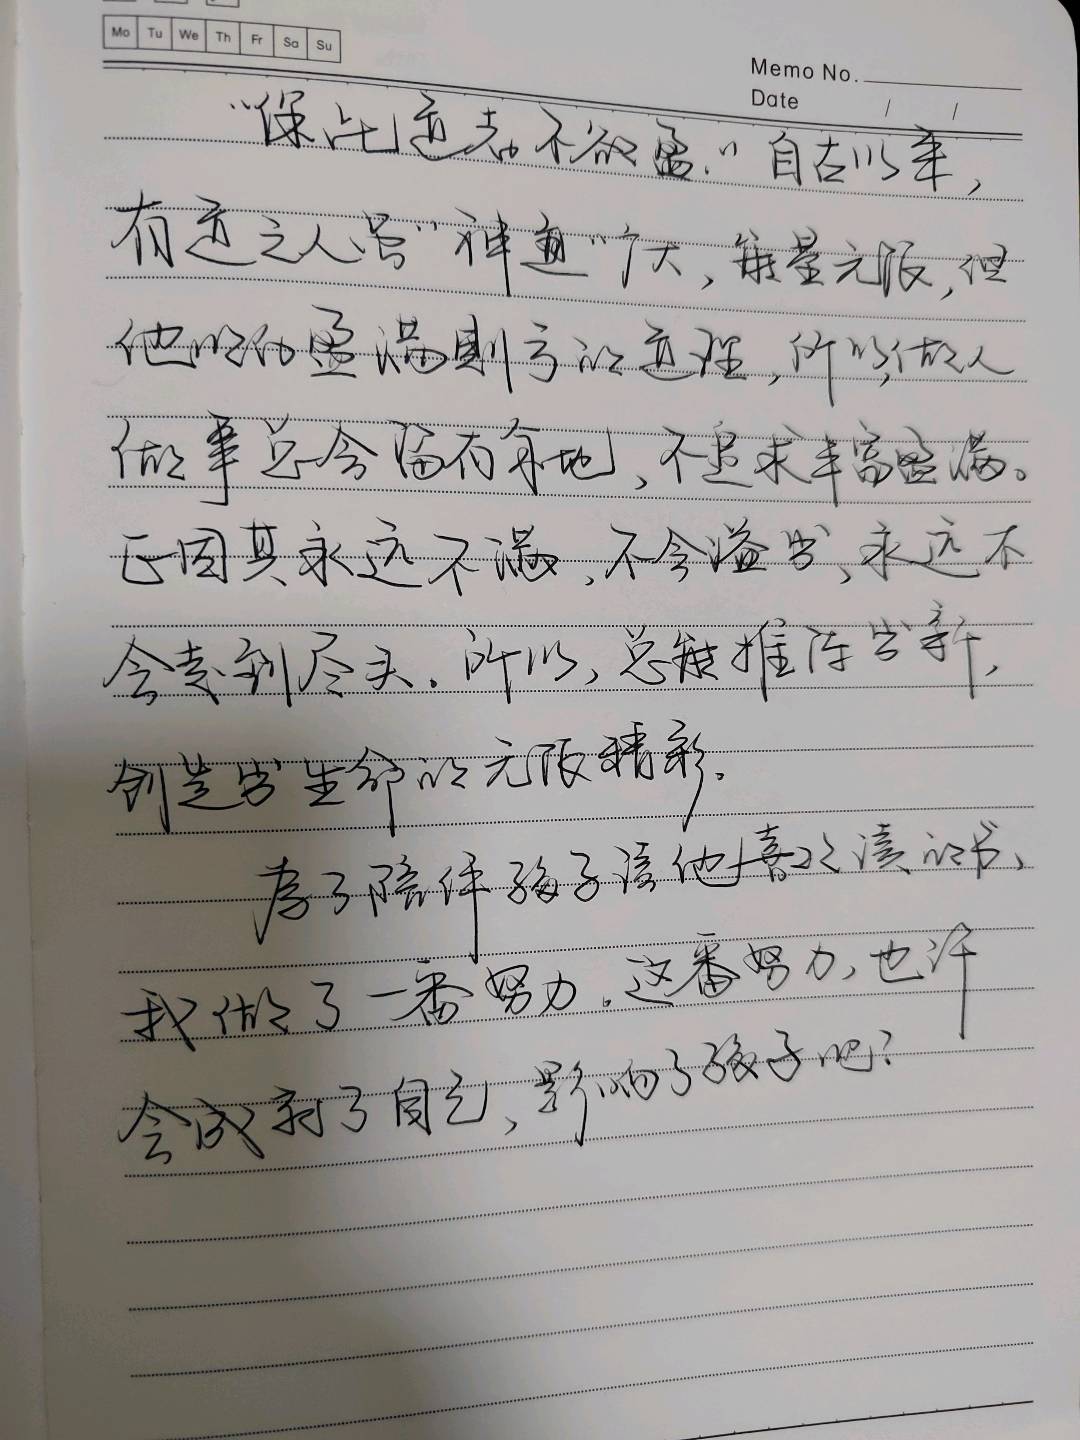 Mo Tu We Th Fr Sa Su
Memo No.
Date / /
“保此道者不欲盈.”自古以来,
有道之人虽“神通”广大,能量无限,但
他明白盈满则亏的道理,所以,做人
做事总会留有余地、不追求丰富盈满。
正因其永远不满、不会溢出、永远不
会走到尽头.所以,总能推陈出新,
创造出生命的无限精彩.
为了陪伴孩子读他喜欢读的书、
我做了一番努力.这番努力,也许
会成就了自己,影响了孩子吧?